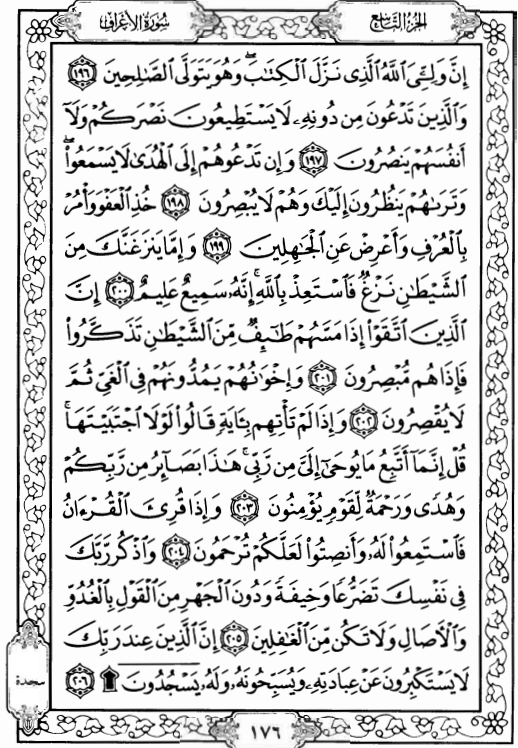 الجزء التاسع
سورة الأعراف
إِنَّ وَلِـِّۧيَ ٱللَّهُ ٱلَّذِى نَزَّلَ ٱلْكِتَٰبَ ۖ وَهُوَ يَتَوَلَّى ٱلصَّٰلِحِينَ ١٩٦
وَٱلَّذِينَ تَدْعُونَ مِن دُونِهِۦ لَا يَسْتَطِيعُونَ نَصْرَكُمْ وَلَآ
أَنفُسَهُمْ يَنصُرُونَ ١٩٧ وَإِن تَدْعُوهُمْ إِلَى ٱلْهُدَىٰ لَا يَسْمَعُوا۟ ۖ
وَتَرَىٰهُمْ يَنظُرُونَ إِلَيْكَ وَهُمْ لَا يُبْصِرُونَ ١٩٨ خُذِ ٱلْعَفْوَ وَأْمُرْ
بِٱلْعُرْفِ وَأَعْرِضْ عَنِ ٱلْجَٰهِلِينَ ١٩٩ وَإِمَّا يَنزَغَنَّكَ مِنَ
ٱلشَّيْطَٰنِ نَزْغٌ فَٱسْتَعِذْ بِٱللَّهِ ۚ إِنَّهُۥ سَمِيعٌ عَلِيمٌ ٢٠٠ إِنَّ
ٱلَّذِينَ ٱتَّقَوْا۟ إِذَا مَسَّهُمْ طَٰٓئِفٌ مِّنَ ٱلشَّيْطَٰنِ تَذَكَّرُوا۟
فَإِذَا هُم مُّبْصِرُونَ ٢٠١ وَإِخْوَٰنُهُمْ يَمُدُّونَهُمْ فِى ٱلْغَىِّ ثُمَّ
لَا يُقْصِرُونَ ٢٠٢ وَإِذَا لَمْ تَأْتِهِم بِـَٔايَةٍ قَالُوا۟ لَوْلَا ٱجْتَبَيْتَهَا ۚ
قُلْ إِنَّمَآ أَتَّبِعُ مَا يُوحَىٰٓ إِلَىَّ مِن رَّبِّى ۚ هَٰذَا بَصَآئِرُ مِن رَّبِّكُمْ
وَهُدًى وَرَحْمَةٌ لِّقَوْمٍ يُؤْمِنُونَ ٢٠٣ وَإِذَا قُرِئَ ٱلْقُرْءَانُ
فَٱسْتَمِعُوا۟ لَهُۥ وَأَنصِتُوا۟ لَعَلَّكُمْ تُرْحَمُونَ ٢٠٤ وَٱذْكُر رَّبَّكَ
فِى نَفْسِكَ تَضَرُّعًا وَخِيفَةً وَدُونَ ٱلْجَهْرِ مِنَ ٱلْقَوْلِ بِٱلْغُدُوِّ
وَٱلْءَاصَالِ وَلَا تَكُن مِّنَ ٱلْغَٰفِلِينَ ٢٠٥ إِنَّ ٱلَّذِينَ عِندَ رَبِّكَ
لَا يَسْتَكْبِرُونَ عَنْ عِبَادَتِهِۦ وَيُسَبِّحُونَهُۥ وَلَهُۥ يَسْجُدُونَ ۩ ٢٠٦
سجدة
١٧٦